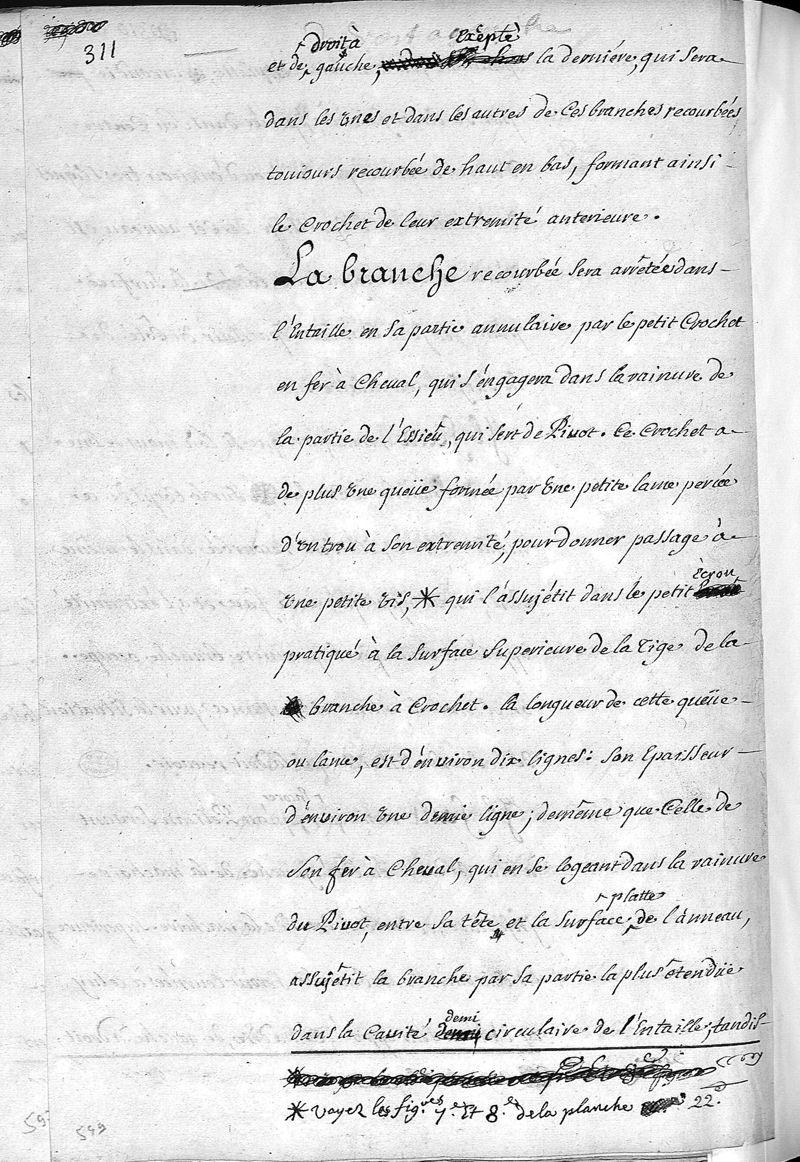 311
droit à Exepté
et de gauche, la derniére, qui sera
dans les unes et dans les autres de ces branches recourbées
toujours recourbée de haut en bas, formant ainsi
le Crochet de leur extremité anterieure.
La branche recourbée sera arrêtée dans
l'Entaille en sa partie annulaire par le petit Crochet
en fer à Cheval, qui s'engagera dans la rainure de
la partie de l'Essieu, qui sert de Pivot. Ce Crochet a
de plus une queüe formée par une petite lame percée
d'un trou à son extremité, pour donner passage à
une petite vis, * qui l'assujétit dans le petit Ècrou
pratiqué à la surface superieure de la Tige de la
branche à Crochet. la longueur de cette queüe
ou lame, est d'énviron dix lignes: son Epaisseur
d'énviron une demie ligne; de même que Celle de
son fer à Cheval, qui en se logeant dans la rainure
du Pivot, entre sa tête et la surface platte de l'anneau,
assujétit la branche par sa partie la plus étendüe
dans la Cavité demi circulaire de l'Entaille; tandis
* voyez les fig.es 7.e Et 8.e de la planche 22.
599